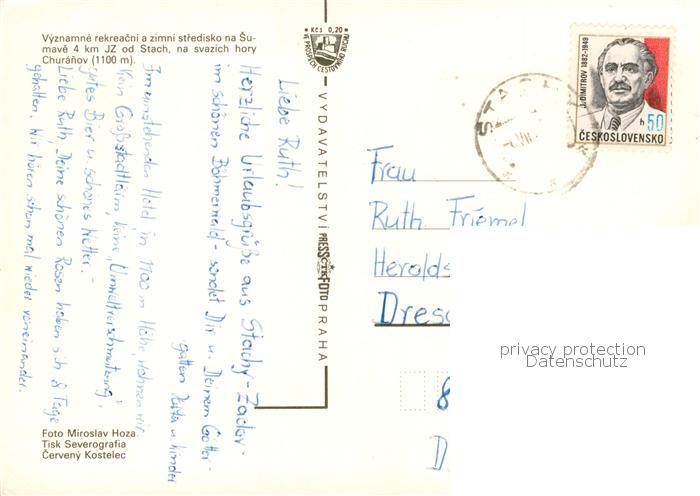 Významné rekreační a zimní středisko na Šu-
mavě 4 km JZ od Stach, na svazích hory
Churáňov (1100 m).
Kčs 0,20
VE PROSPĚCH CESTOVNÍHO RUCHU
Liebe Ruth!
Herzliche Urlaubsgrüße aus Stachy-Zadov-
im schönen Böhmerwald - sendet Dir u. Deinem Götter-
gatten Jutta u. Kinder
Im umstehenden Hotel in 1100 m Höhe, wohnen wir
Kein Großstadtlärm, keine „Umweltverschmutzung",
gutes Bier u. schönes Wetter. -
Liebe Ruth, Deine schönen Rosen haben sich 8 Tage
gehalten. Wir hören schon mal wieder voneinander.
Foto Miroslav Hoza
Tisk Severografia
Červený Kostelec
VYDAVATELSTVÍ PRESSFOTO PRAHA
STACHY
J. DIMITROV 1882-1949
h 50
ČESKOSLOVENSKO
Frau
Ruth Friemel
Herolds
Dresd
8
D
privacy protection
Datenschutz